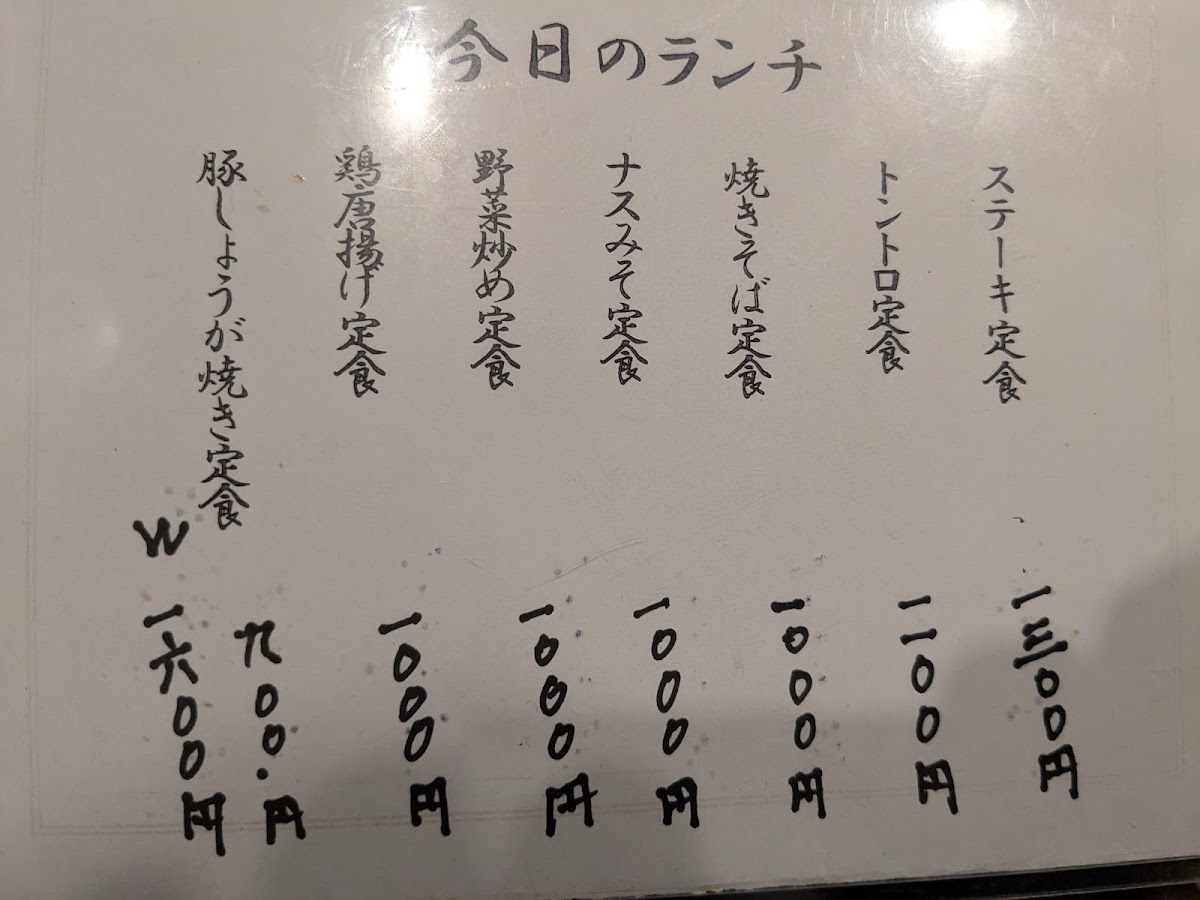 今日のランチ
ステーキ定食
一三〇〇円
トントロ定食
一一〇〇円
焼きそば定食
一〇〇〇円
ナスみそ定食
一〇〇〇円
野菜炒め定食
一〇〇〇円
鶏唐揚げ定食
一〇〇〇円
豚しょうが焼き定食
九〇〇.円
W 一六〇〇円